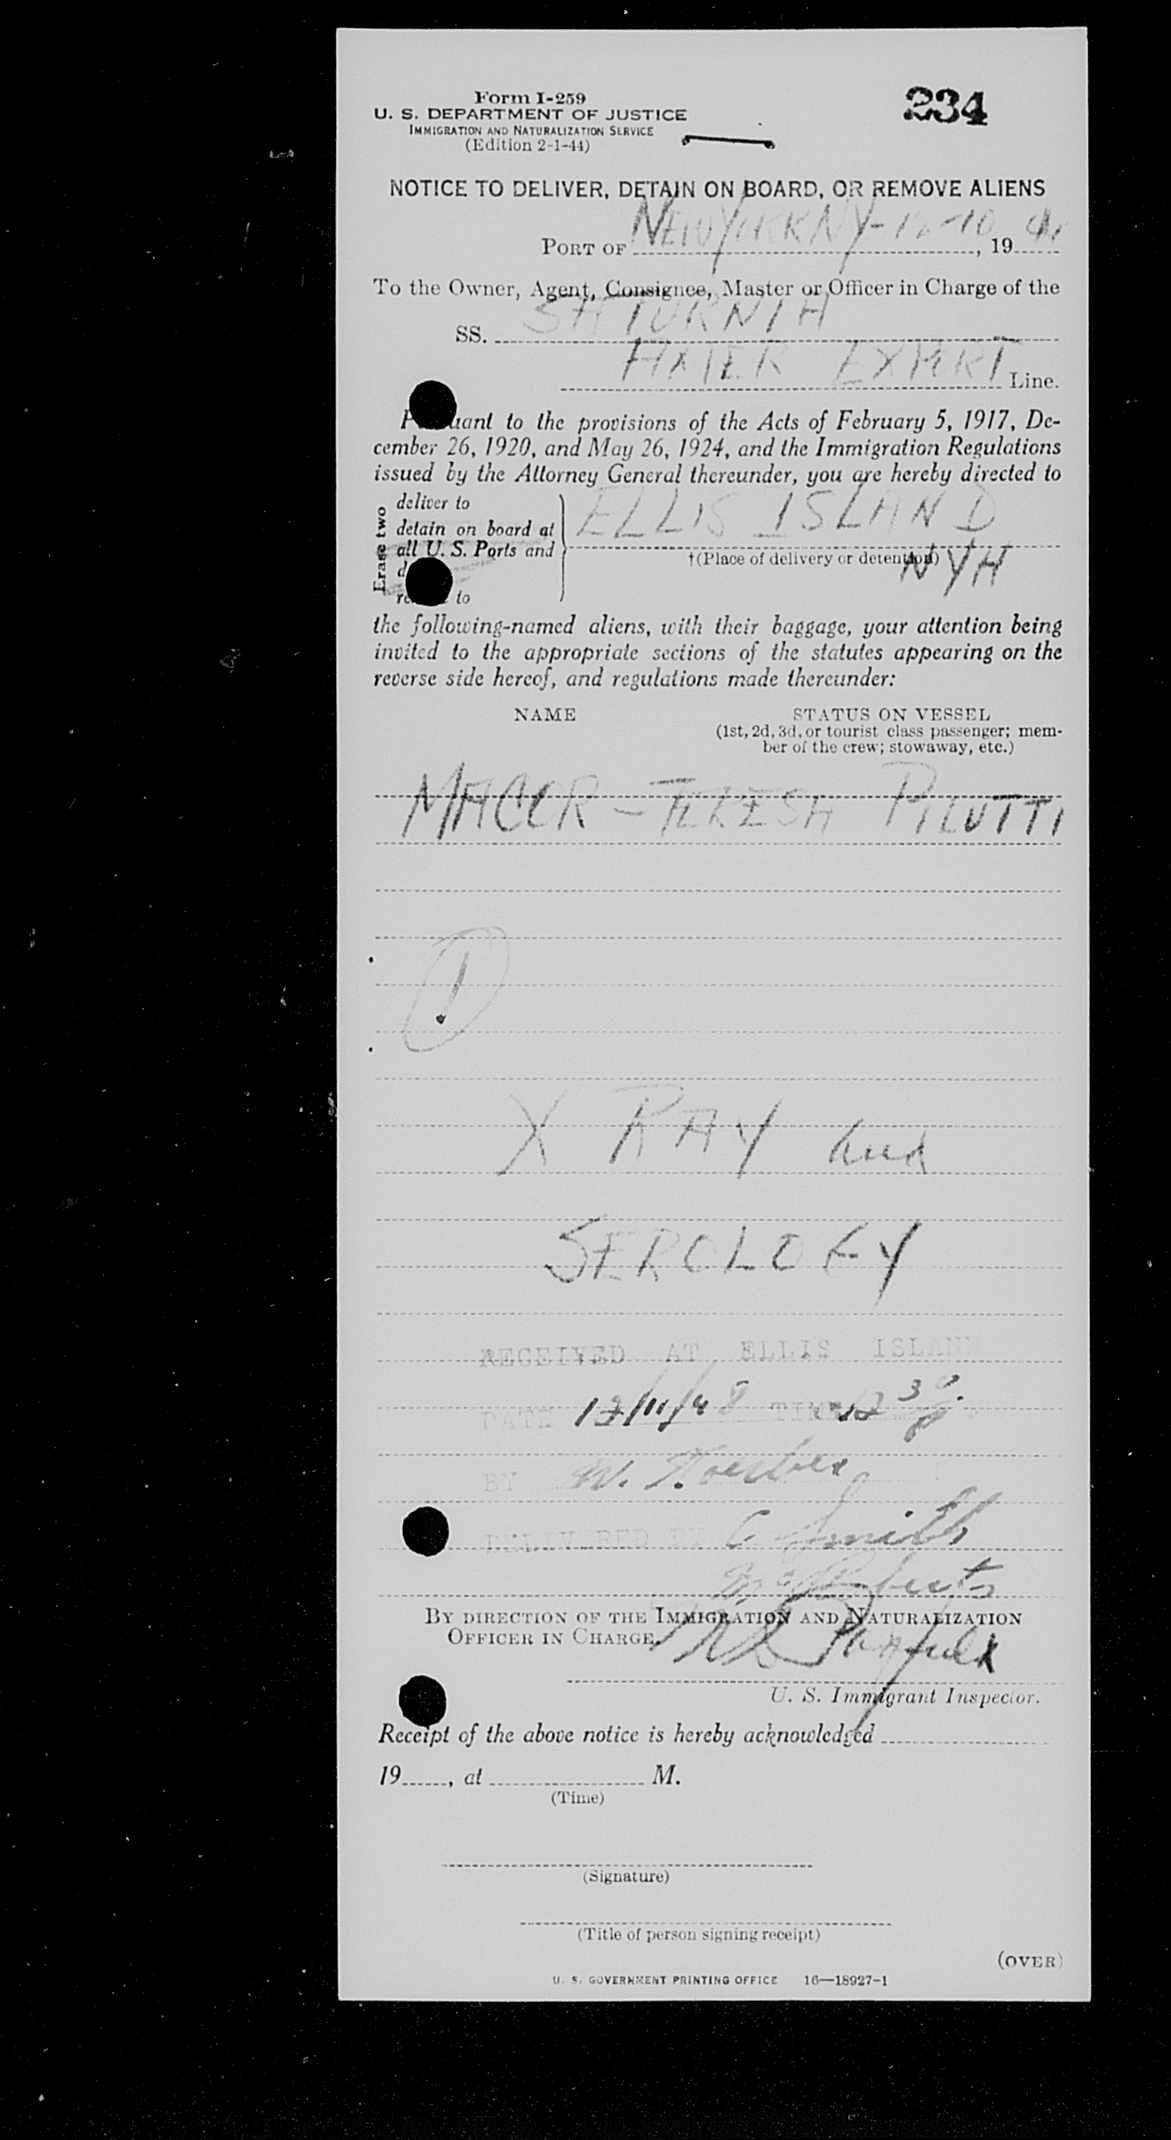 Form I-259
234
U. S. DEPARTMENT OF JUSTICE
IMMIGRATION AND NATURALIZATION SERVICE
(Edition 2-1-44)
NOTICE TO DELIVER, DETAIN ON BOARD, OR REMOVE ALIENS
PORT OF NEW YORK NY-12-10, 19
To the Owner, Agent, Consignee, Master or Officer in Charge of the
SS. SATURNIA
AMER EXPORT Line.
Pursuant to the provisions of the Acts of February 5, 1917, De-
cember 26, 1920, and May 26, 1924, and the Immigration Regulations
issued by the Attorney General thereunder, you are hereby directed to
Erase two
deliver to
detain on board at
all U. S. Ports and
to
ELLIS ISLAND
†(Place of delivery or detention)
NYH
the following-named aliens, with their baggage, your attention being
invited to the appropriate sections of the statutes appearing on the
reverse side hereof, and regulations made thereunder:
NAME
STATUS ON VESSEL
(1st, 2d, 3d, or tourist class passenger; mem-
ber of the crew; stowaway, etc.)
MACOR - TERESA PILUTTI
1
X RAY and
SEROLOGY
RECEIVED AT ELLIS ISLAND
DATE 12/11/48 TIME 12 30 P
BY W.
DELIVERED BY C Smith
BY DIRECTION OF THE IMMIGRATION AND NATURALIZATION
OFFICER IN CHARGE.
U. S. Immigrant Inspector.
Receipt of the above notice is hereby acknowledged
19, at M.
(Time)
(Signature)
(Title of person signing receipt)
(OVER)
U. S. GOVERNMENT PRINTING OFFICE 16—18927-1